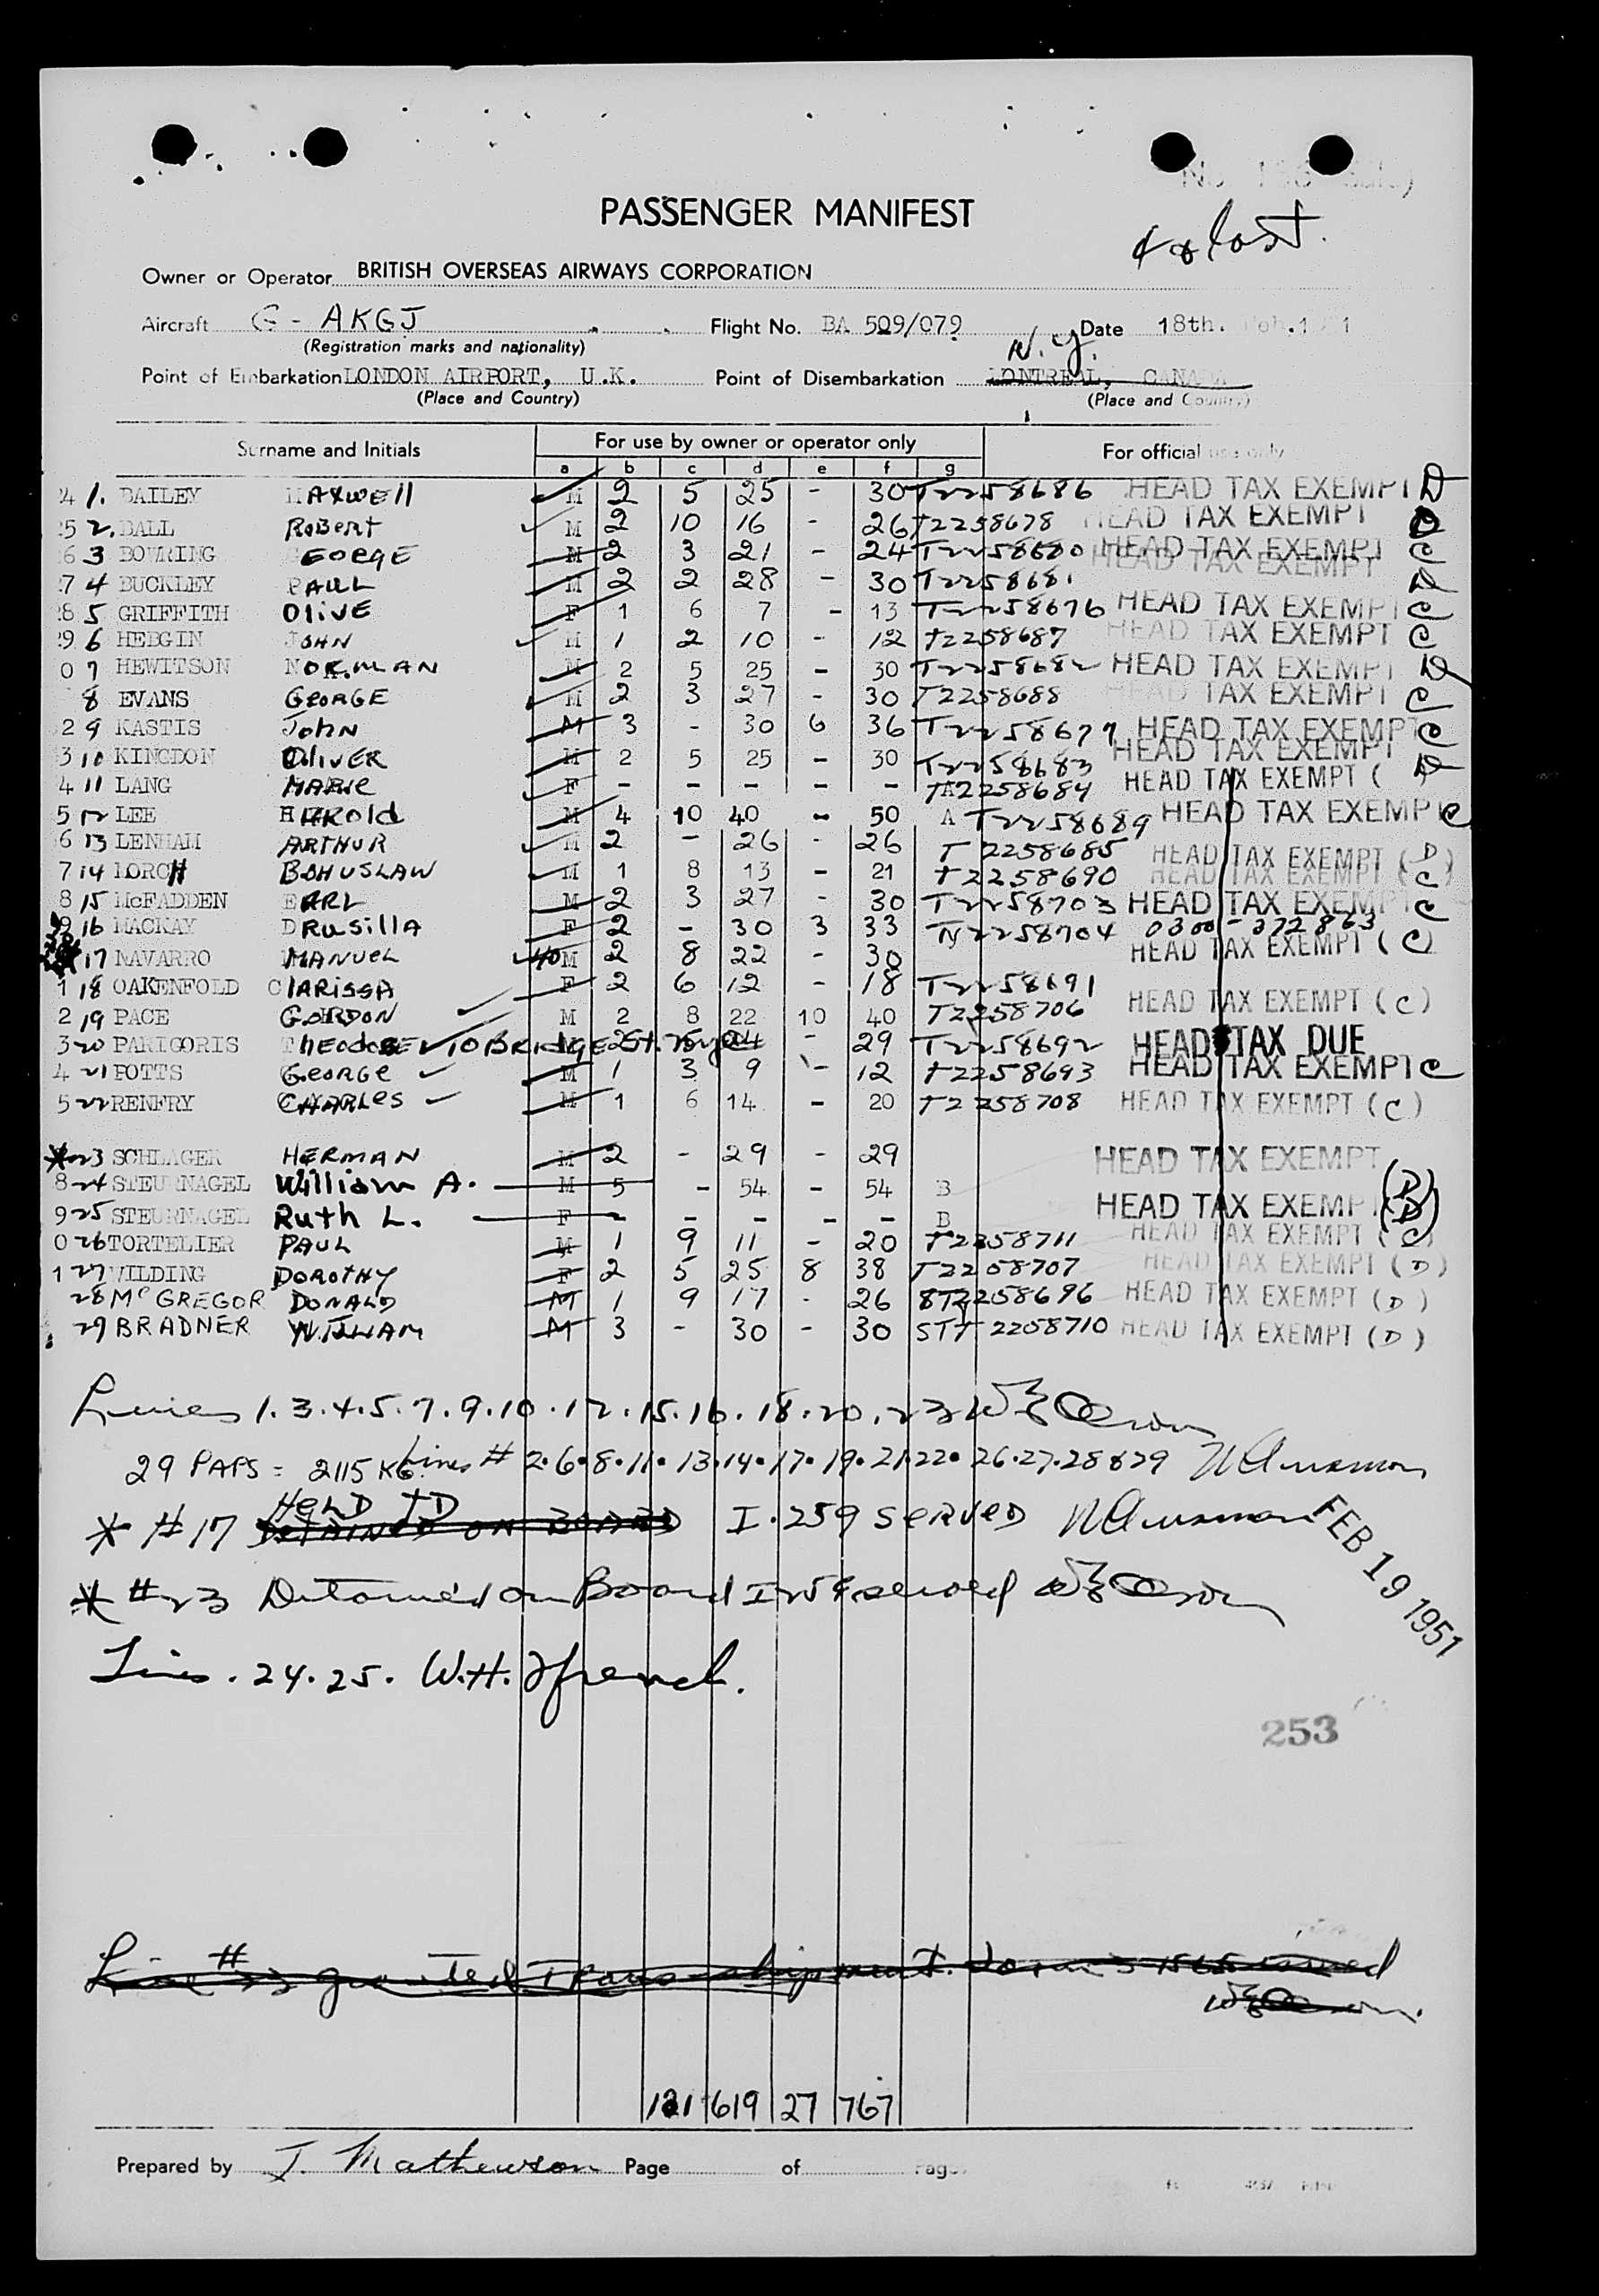 PASSENGER MANIFEST
Owner or Operator BRITISH OVERSEAS AIRWAYS CORPORATION
Aircraft G - AKGJ Flight No. BA 509/079 Date 18th.
(Registration marks and nationality)
N.Y.
Point of Embarkation LONDON AIRPORT, U.K. Point of Disembarkation MONTREAL, CANADA
(Place and Country) (Place and Country)
Surname and Initials For use by owner or operator only For official use only
a b c d e f g
1. BAILEY MAXWEll M 2 5 25 - 30 T2258686 HEAD TAX EXEMPT D
2. BALL RoBert M 2 10 16 - 26 T2258678 HEAD TAX EXEMPT D
3 BOWRING GEORGE M 2 3 21 - 24 T2258680 HEAD TAX EXEMPT C
4 BUCKLEY PAUL M 2 2 28 - 30 T2258681 HEAD TAX EXEMPT D
5 GRIFFITH OliVE F 1 6 7 - 13 T2258676 HEAD TAX EXEMPT C
6 HEDGIN JOHN M 1 2 10 - 12 T2258687 HEAD TAX EXEMPT C
7 HEWITSON NORMAN M 2 5 25 - 30 T2258682 HEAD TAX EXEMPT D
8 EVANS GEORGE M 2 3 27 - 30 T2258688 HEAD TAX EXEMPT C
9 KASTIS John M 3 - 30 6 36 T2258677 HEAD TAX EXEMPT C
10 KINGDON OliVER M 2 5 25 - 30 T2258683 HEAD TAX EXEMPT D
11 LANG MARIE F - - - - - T2258684 HEAD TAX EXEMPT (
12 LEE HARold M 4 10 40 - 50 A T2258689 HEAD TAX EXEMPT C
13 LENHAM ARTHUR M 2 - 26 - 26 T2258685 HEAD TAX EXEMPT (D)
14 LORCH BOHUSLAW M 1 8 13 - 21 T2258690 HEAD TAX EXEMPT (C)
15 McFADDEN EARL M 2 3 27 - 30 T2258703 HEAD TAX EXEMPT C
16 MACKAY DRusillA F 2 - 30 3 33 T2258704 0300-272863
17 NAVARRO MANUEL M 2 8 22 - 30 HEAD TAX EXEMPT (C)
18 OAKENFOLD ClARissA F 2 6 12 - 18 T2258691
19 PACE GORDON M 2 8 22 10 40 T2258706 HEAD TAX EXEMPT (C)
20 PARIGORIS 10 BRIDGE St. - 29 T2258692 HEAD TAX DUE
21 POTTS George M 1 3 9 - 12 T2258693 HEAD TAX EXEMPT C
22 RENFRY CHARLes M 1 6 14 - 20 T2258708 HEAD TAX EXEMPT (C)
* 23 SCHLAGER HERMAN M 2 - 29 - 29 HEAD TAX EXEMPT
24 STEURNAGEL William A. M 5 - 54 - 54 B (D)
25 STEURNAGEL Ruth L. F - - - - - B HEAD TAX EXEMPT (D)
26 TORTELIER PAUL M 1 9 11 - 20 T2258711 HEAD TAX EXEMPT (C)
27 WILDING DOROTHY F 2 5 25 8 38 T2258707 HEAD TAX EXEMPT (D)
28 Mc GREGOR DONALD M 1 9 17 - 26 T2258696 HEAD TAX EXEMPT (D)
29 BRADNER WILLIAM M 3 - 30 - 30 2258710 HEAD TAX EXEMPT (D)
Lines 1. 3. 4. 5. 7. 9. 10. 12. 15. 16. 18. 20. 23
29 PAPS = 2115 KG. Lines # 2. 6. 8. 11. 13. 14. 17. 19. 21. 22. 26. 27. 28 & 29
HELD TD
* # 17 DETAINED ON BOARD I. 259 SERVED
FEB 19 1951
* # 23 Detained on Board I 259 served
Lines. 24. 25. W.H. French.
253
Line # 23 granted Transshipment. issued
121 619 27 767
Prepared by J. Mathewson Page of Pages